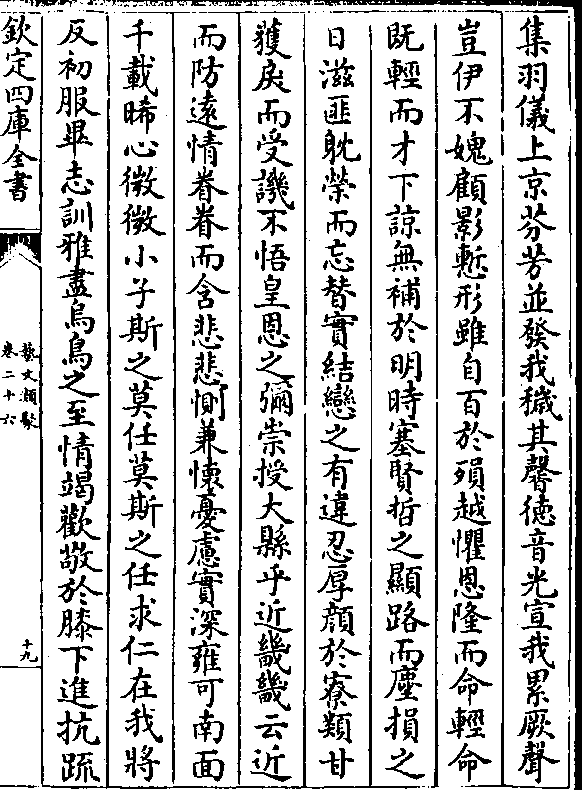 集羽儀上京芬芳並發我穢其馨徳音光宣我累厥聲
豈伊不媿顧影慙形雖自百於殞越懼恩隆而命輕命
既輕而才下諒無補於明時塞賢哲之顯路而塵損之
日滋匪躭榮而忘替實結戀之有違忍厚顔於寮類甘
獲戾而受譏不悟皇恩之彌崇授大縣乎近畿畿云近
而防逺情眷眷而含悲悲惻兼懐憂慮實深雍可南面
千載晞心微微小子斯之莫任莫斯之任求仁在我將
反初服畢志訓雅盡烏鳥之至情竭歡敬於膝下進抗䟽
欽定四庫全書
藝文類聚
卷二十六
十九